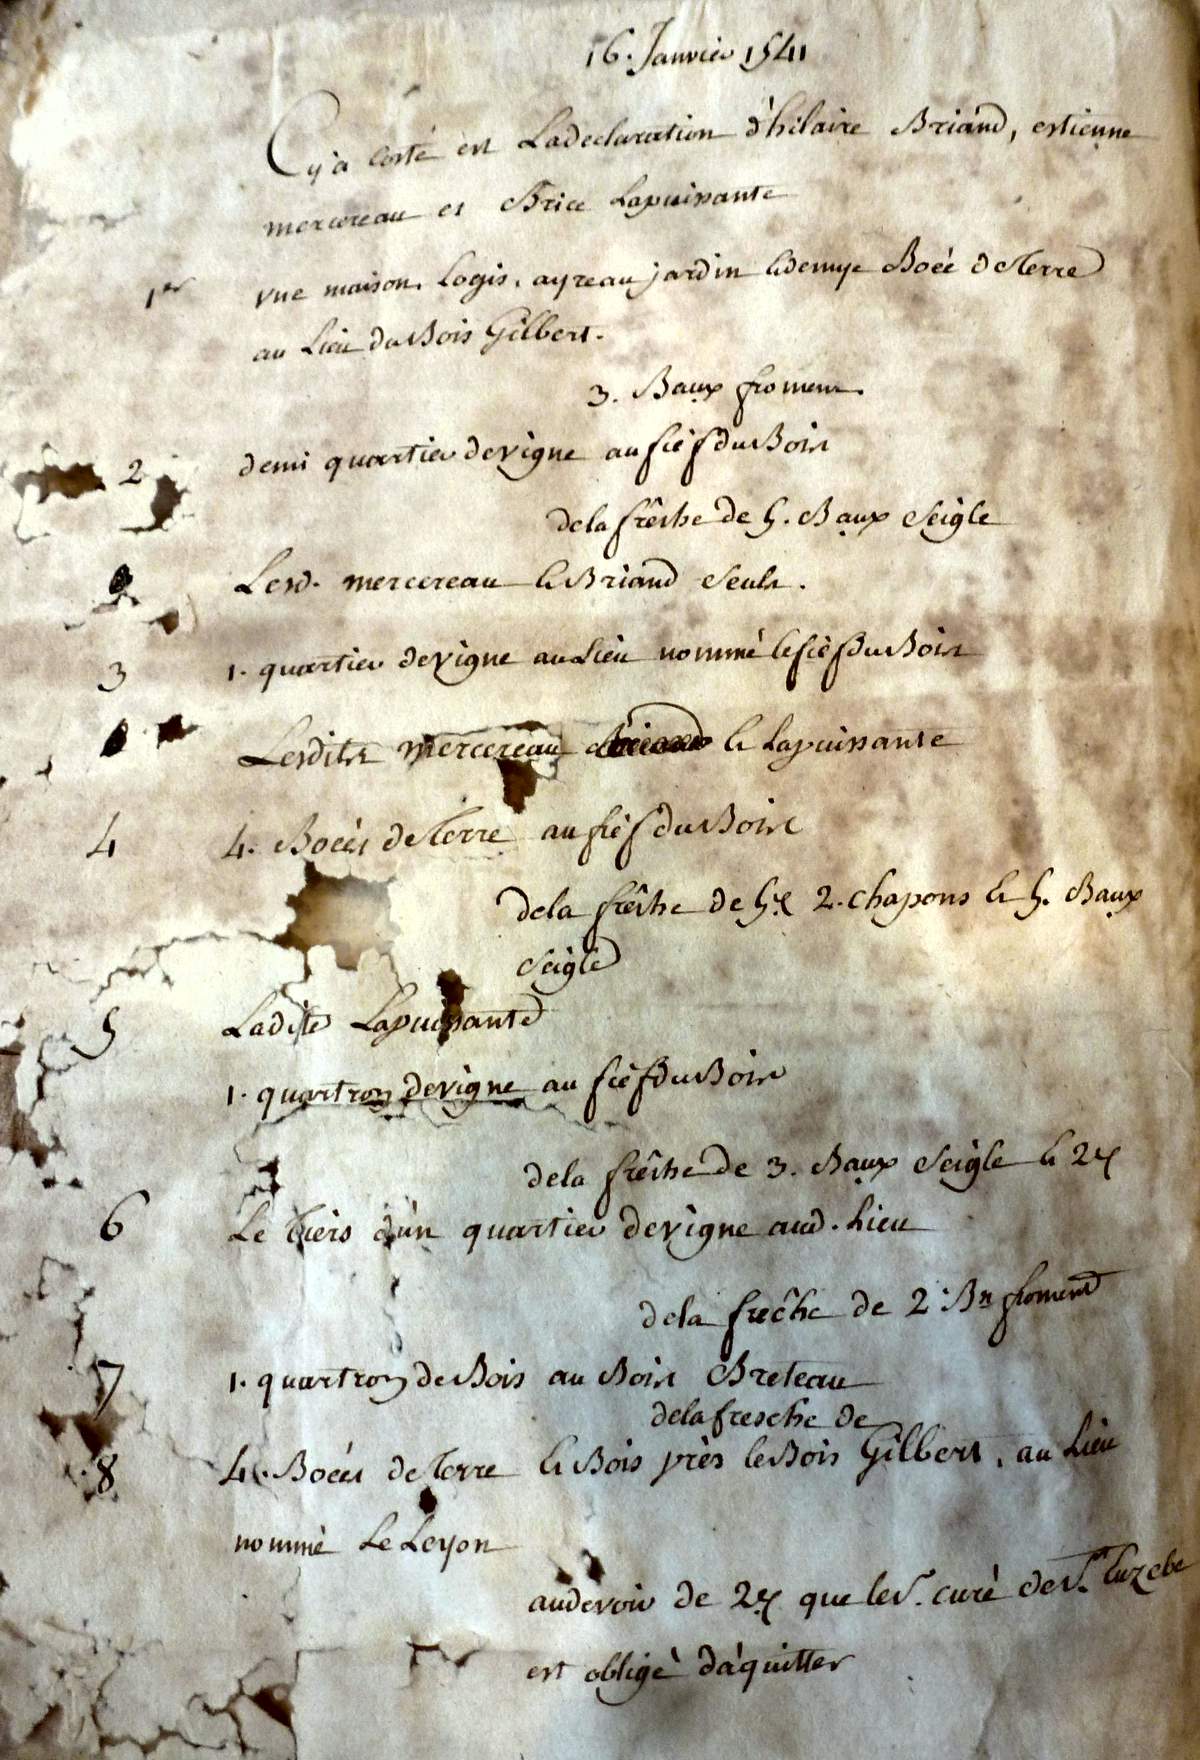 16. Janvier 1541
Cy a costé est La declaration d'hilaire Briand, estienne
mercereau et Brice Lapuissante
1er vne maison, Logis, ayreau jardin & demye Boéé de Terre
au Lieu du Bois Gilbert.
3. Baux froment.
2 demi quartier de vigne au fief du Bois
de la frêche de 5. Baux Seigle
Lesd. mercereau & Briand Seuls.
3 1. quartier de vigne au Lieu nommé le fief du Bois
Lesdits mercereau & Lapuissante
4 4. Boéés de Terre au fief du Bois
de la frêche de 5s 2. chapons & 5. Baux
Seigle
5 Ladite Lapuissante
1. quartron de vigne au fief du Bois
de la frêche de 3. Baux Seigle & 2s
6 Le Tiers d'un quartier de vigne aud. Lieu
de la frêche de 2. Bx froment
7 1. quartron de Bois au Bois Breteau
de la fresche de
8 4. Boéés de Terre & Bois près le Bois Gilbert, au Lieu
nommé Le Leyon
au devoir de 2s que le s. curé de St. Euzebe
est obligé d'aquitter